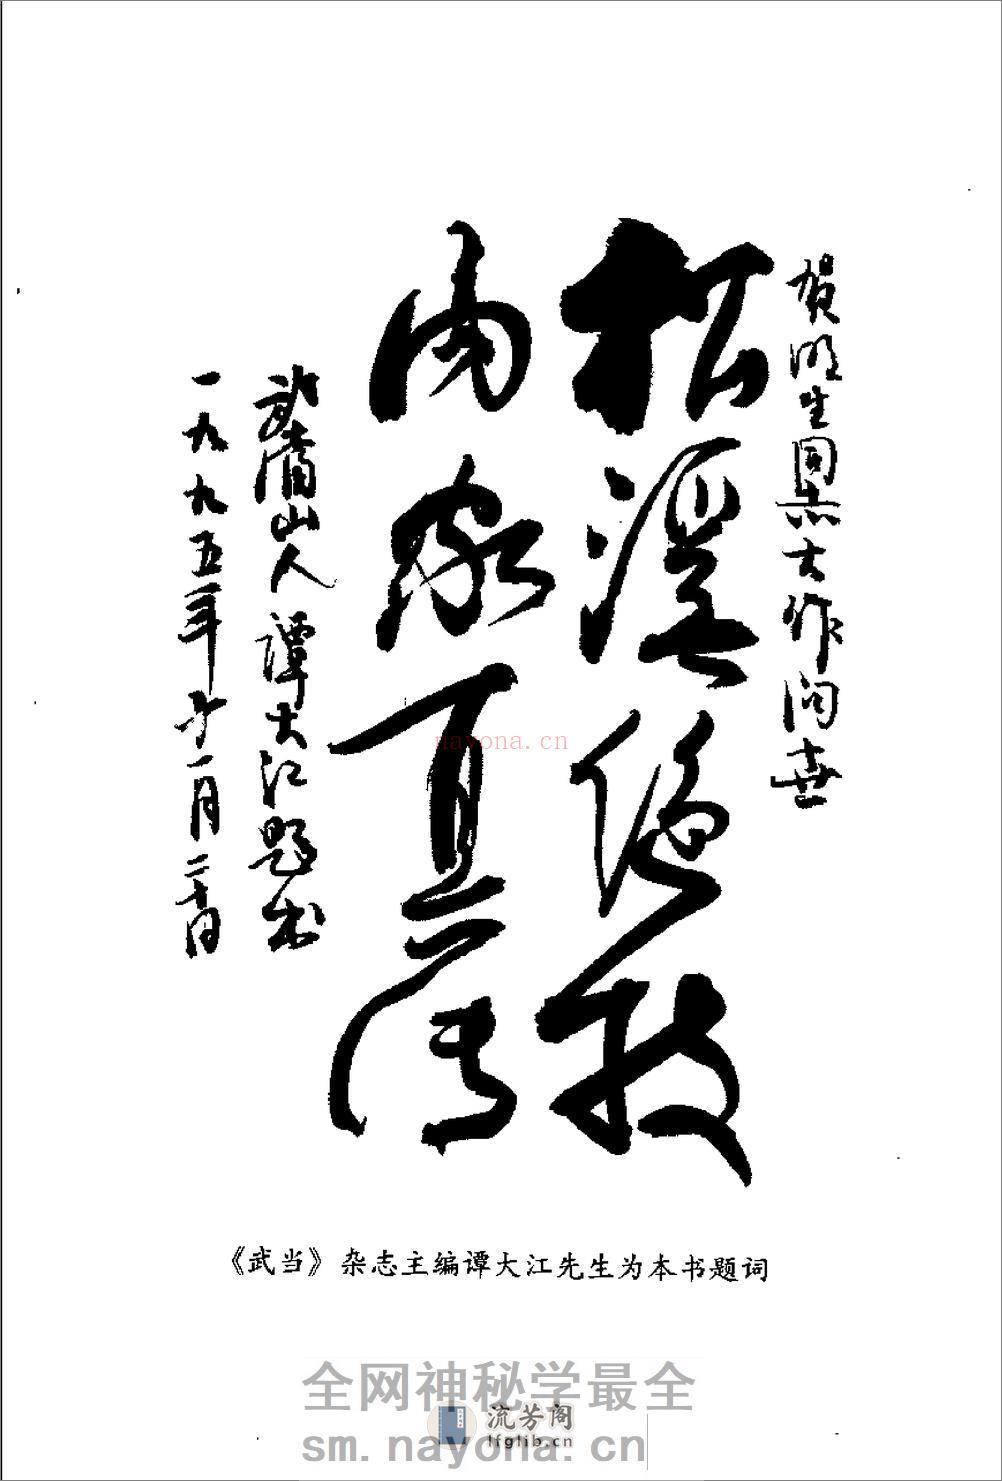 贺明生同志大作问世
松溪绝技
内家真传
武当山人谭大江题书
一九九五年十一月二十日
nayona.cn
《武当》杂志主编谭大江先生为本书题词
全网神秘学最全
流芳阁
lfglib.cn
sm.nayona.cn